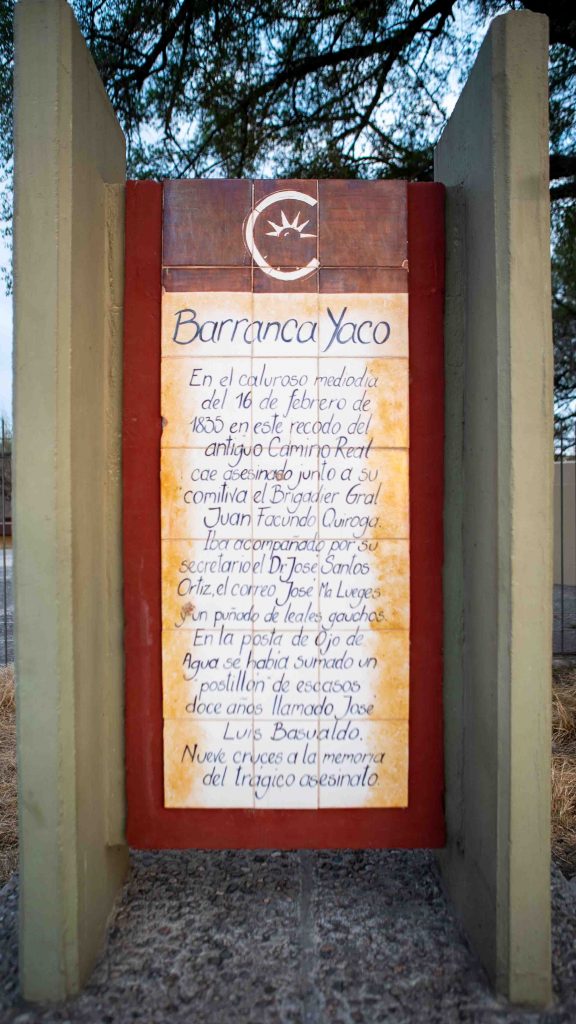 Barranca Yaco
En el caluroso mediodia
del 16 de febrero de
1835 en este recodo del
antiguo Camino Real
cae asesinado junto a su
comitiva el Brigadier Gral
Juan Facundo Quiroga.
Iba acompañado por su
secretario el Dr José Santos
Ortiz, el correo José Mª Lueges
y un puñado de leales gauchos.
En la posta de Ojo de
Agua se habia sumado un
postillón de escasos
doce años llamado José
Luis Basualdo.
Nueve cruces a la memoria
del trágico asesinato.